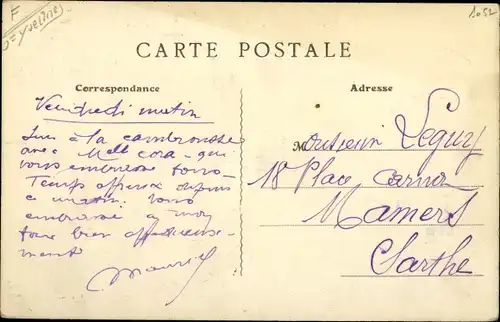 F
1052
CARTE POSTALE
Correspondance
Adresse
Vendredi matin
Suis à la cambrousse
avec Melle Cora - qui
vous embrasse tous -
Temps affreux depuis
ce matin. Vous
embrasse
tous bien affectueuse-
ment
Monsieur Leguy
18 Place Carnot
Mamers
Sarthe